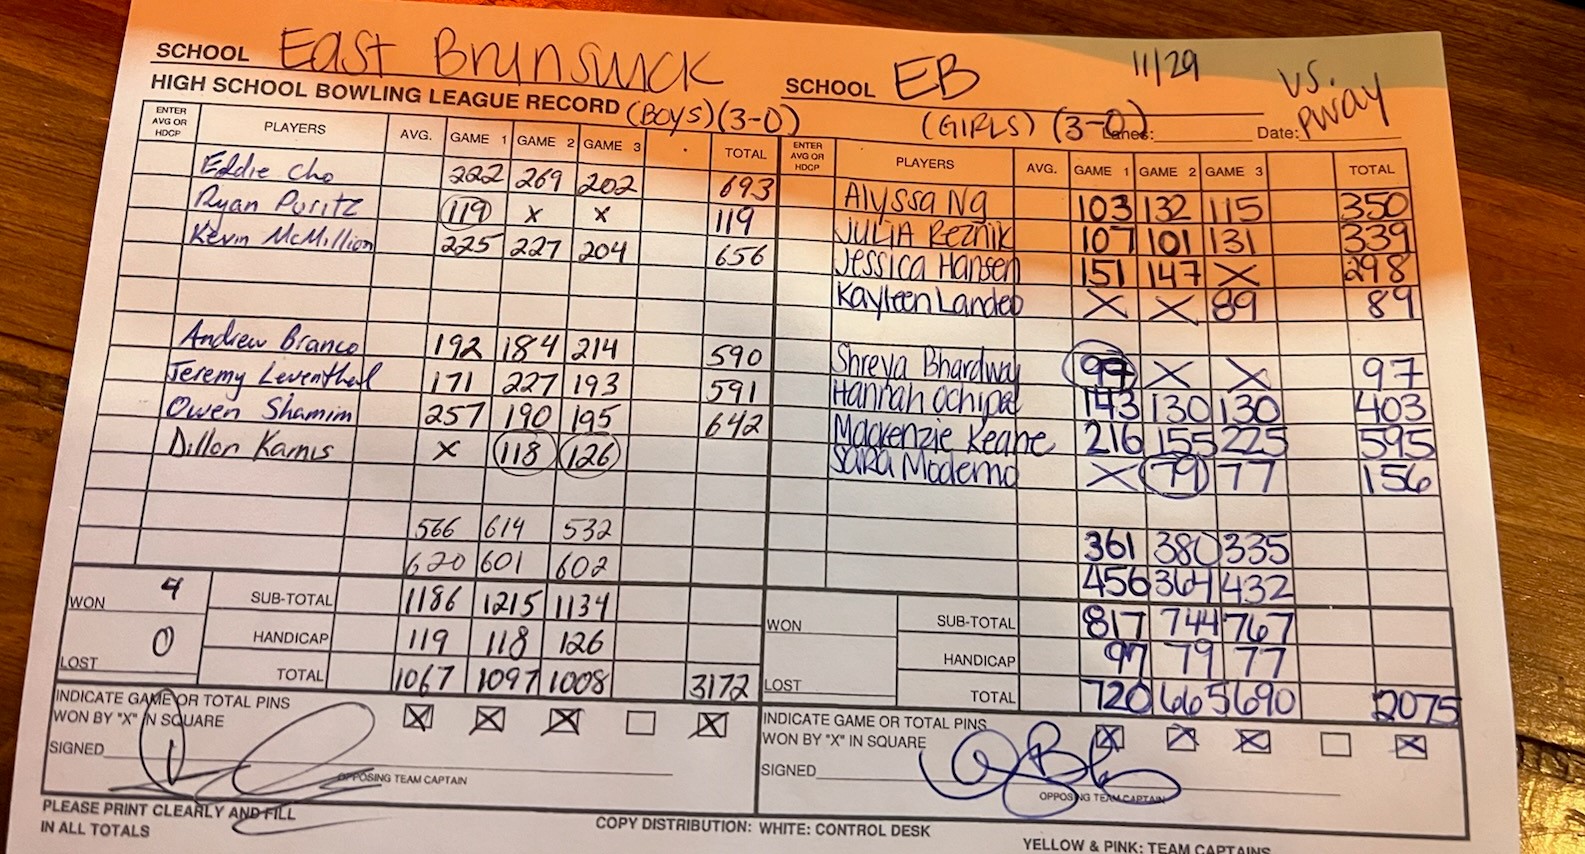 SCHOOL East Brunswick SCHOOL EB 11/29 vs. Pway
HIGH SCHOOL BOWLING LEAGUE RECORD (BOYS) (3-0) (GIRLS) (3-0) Lanes: Date:
ENTER AVG OR HDCP PLAYERS AVG. GAME 1 GAME 2 GAME 3 TOTAL
Eddie Cho 222 269 202 693
Ryan Puritz 119 X X 119
Kevin McMillion 225 227 204 656
Andrew Branco 192 184 214 590
Jeremy Leventhal 171 227 193 591
Owen Shamim 257 190 195 642
Dillon Karnis X 118 126
566 614 532
620 601 602
WON 4 SUB-TOTAL 1186 1215 1134
HANDICAP 119 118 126
LOST 0 TOTAL 1067 1097 1008 3172
INDICATE GAME OR TOTAL PINS
WON BY "X" IN SQUARE X X X X
SIGNED
OPPOSING TEAM CAPTAIN
ENTER AVG OR HDCP PLAYERS AVG. GAME 1 GAME 2 GAME 3 TOTAL
Alyssa Ng 103 132 115 350
JULIA Reznik 107 101 131 339
Jessica Hansen 151 147 X 298
Kayleen Landeo X X 89 89
Shreya Bhardwaj 97 X X 97
Hannah Ochipa 143 130 130 403
Mackenzie Keane 216 155 225 595
Sara Moderno X 79 77 156
361 380 335
456 364 432
WON SUB-TOTAL 817 744 767
HANDICAP 97 79 77
LOST TOTAL 720 665 690 2075
INDICATE GAME OR TOTAL PINS
WON BY "X" IN SQUARE X X X X
SIGNED
OPPOSING TEAM CAPTAIN
PLEASE PRINT CLEARLY AND FILL
IN ALL TOTALS
COPY DISTRIBUTION: WHITE: CONTROL DESK
YELLOW & PINK: TEAM CAPTAINS